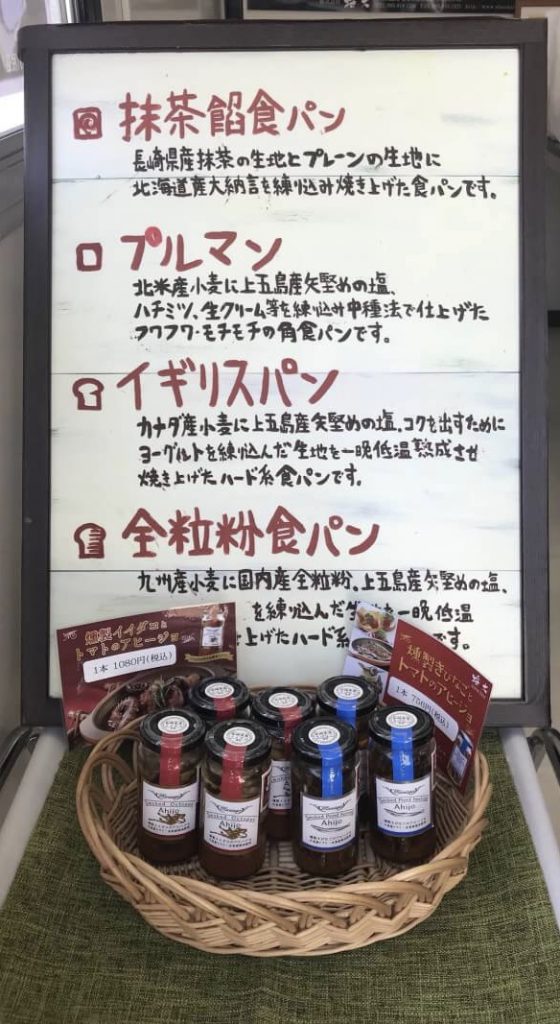 抹茶餡食パン
長崎県産抹茶の生地とプレーンの生地に
北海道産大納言を練り込み焼き上げた食パンです。
プルマン
北米産小麦に上五島産矢堅めの塩、
ハチミツ、生クリーム等を練り込み中種法で仕上げた
フワフワ・モチモチの角食パンです。
イギリスパン
カナダ産小麦に上五島産矢堅めの塩、コクを出すために
ヨーグルトを練り込んだ生地を一晩低温熟成させ
焼き上げたハード系食パンです。
全粒粉食パン
九州産小麦に国内産全粒粉、上五島産矢堅めの塩、
を練り込んだ生 を一晩低温
上げたハード系 です。
燻製イイダコと
トマトのアヒージョ
1本 1080円(税込)
燻製きびなごと
トマトのアヒージョ
1本 756円(税込)
Smoked Octopus
Ahijo
Ahijo
Ahijo
Ahijo